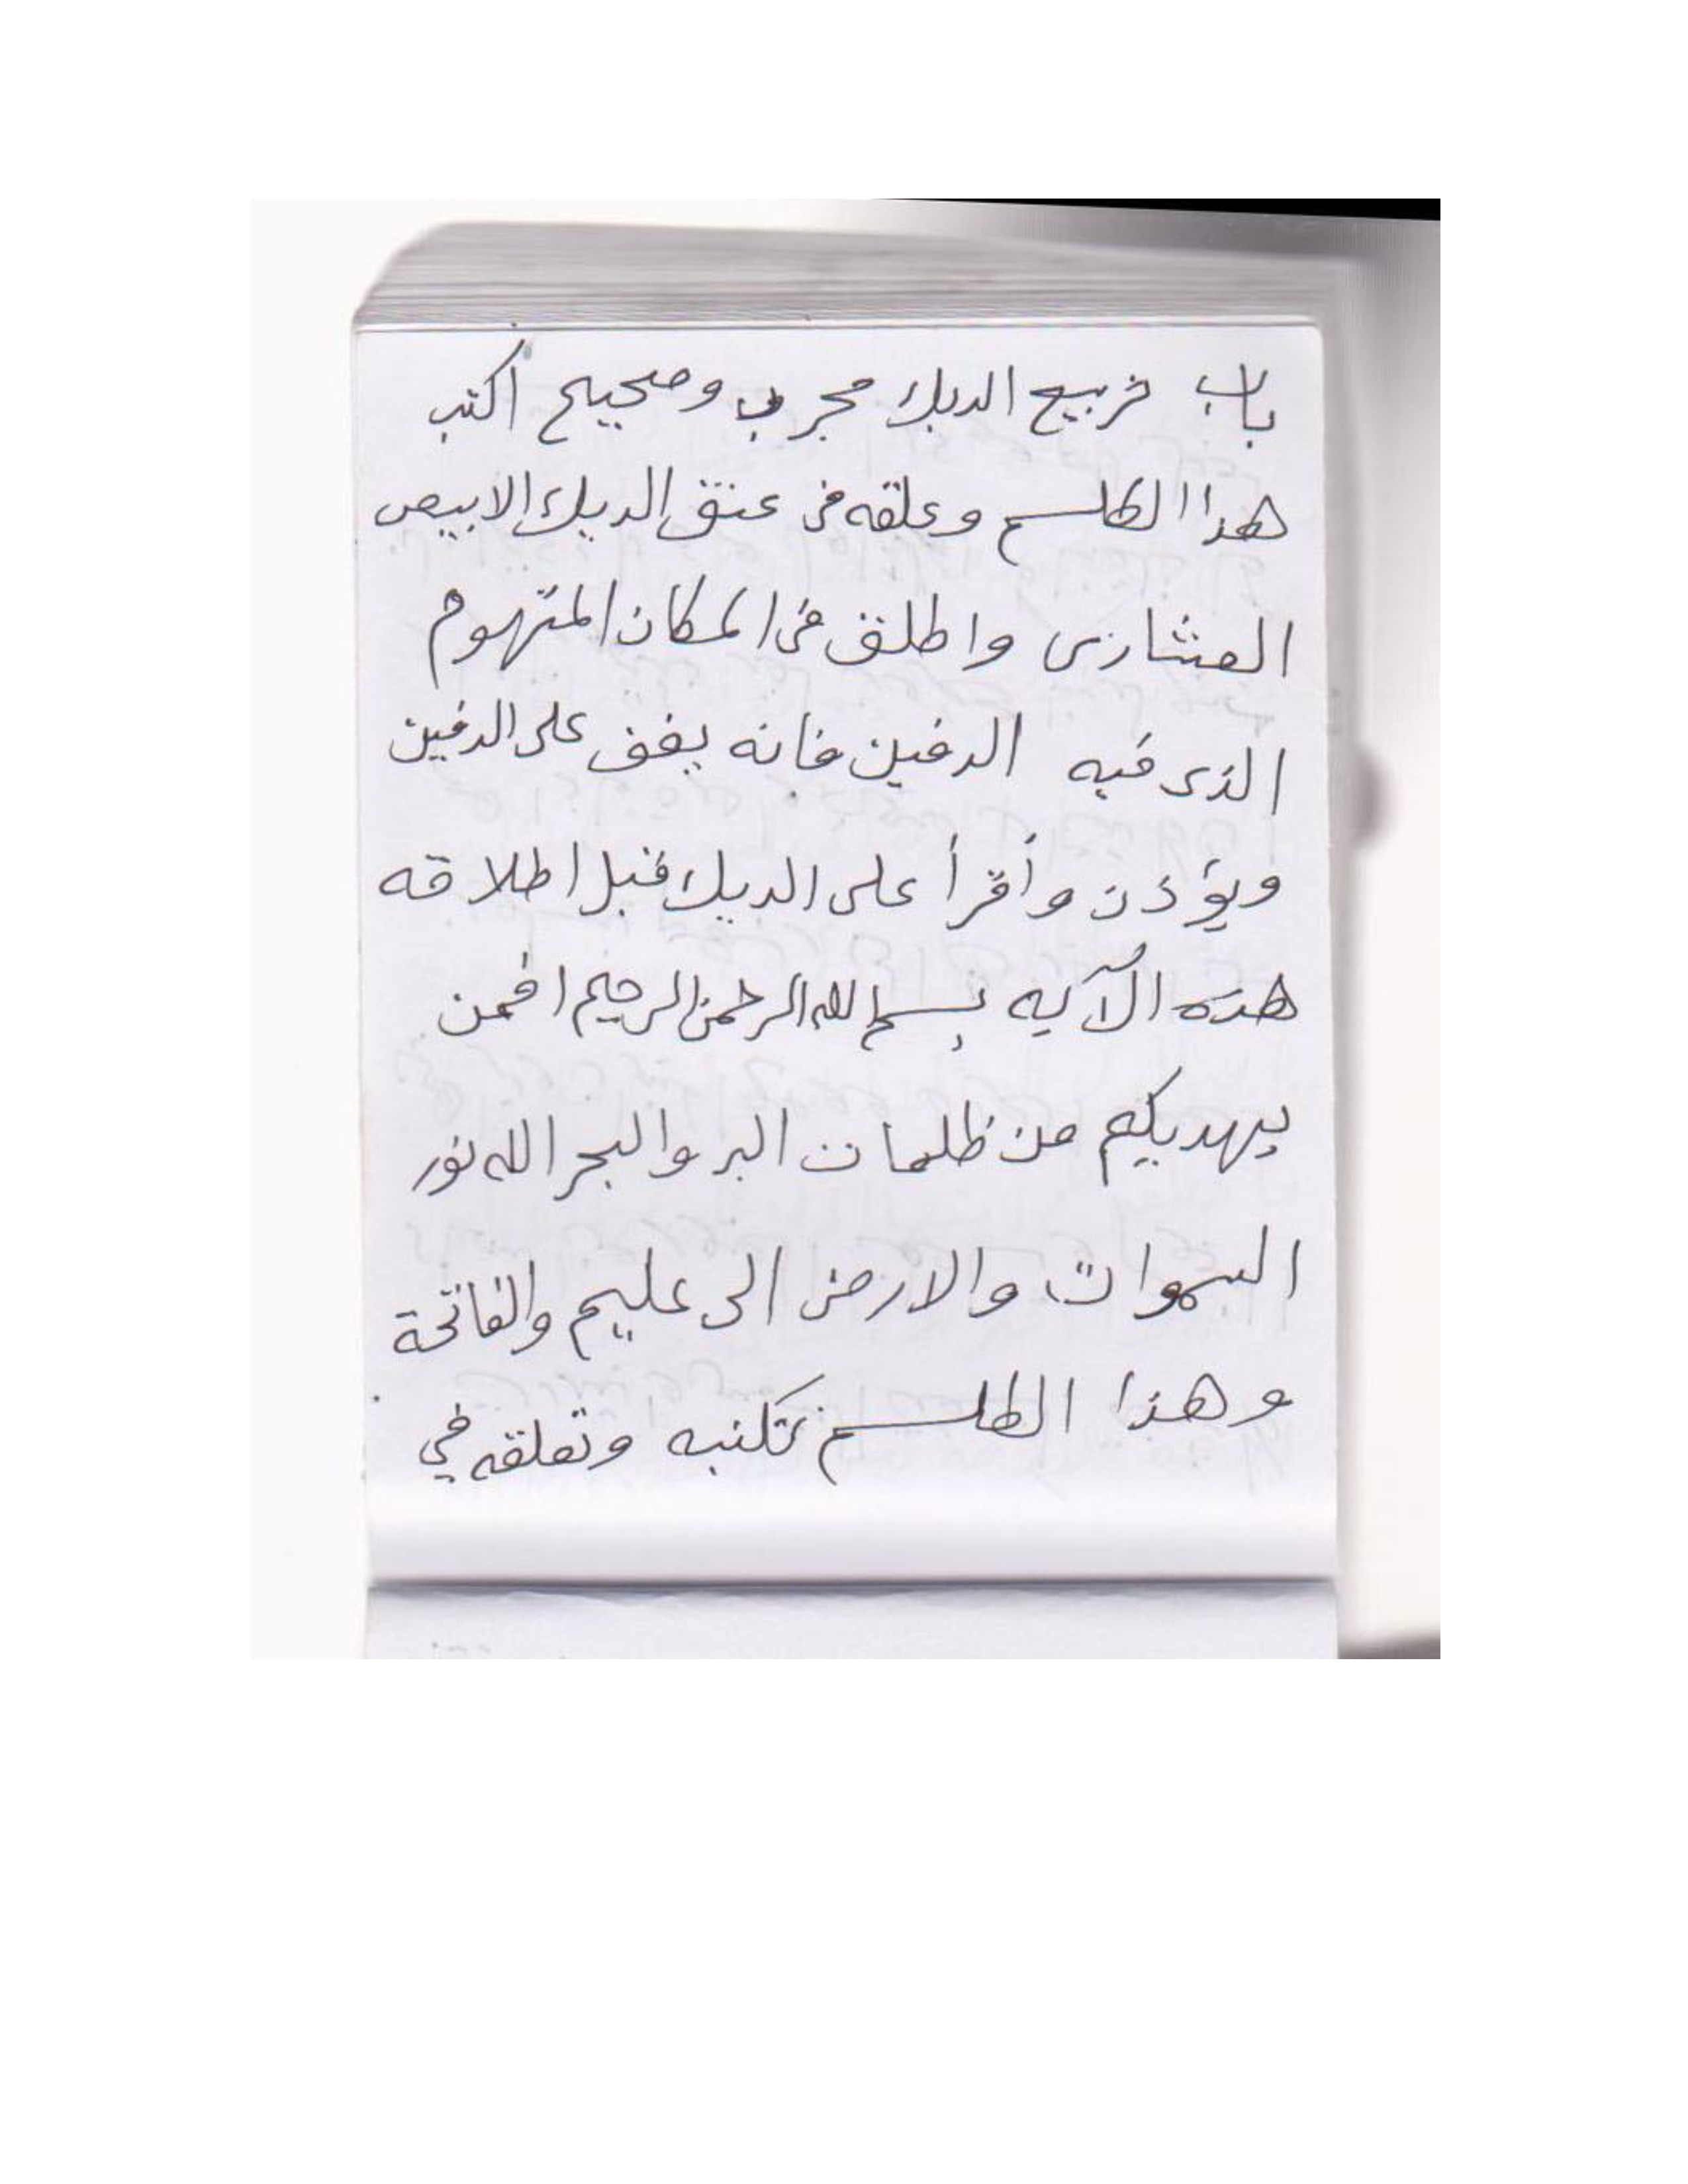 باب خربيع الديك مجرب وصحيح اكتب
هذا الطلسم وعلقه فى عنق الديك الابيض
العشارى واطلق فى المكان المتهوم
الذى فيه الدفين فانه يقف على الدفين
ويؤذن وأقرأ على الديك قبل اطلاقه
هذه الآيه بسم الله الرحمن الرحيم افمن
يهديكم من ظلمات البر والبحر الله نور
السموات والارض الى عليم والفاتحة
وهذا الطلسم تكتبه وتعلقه في